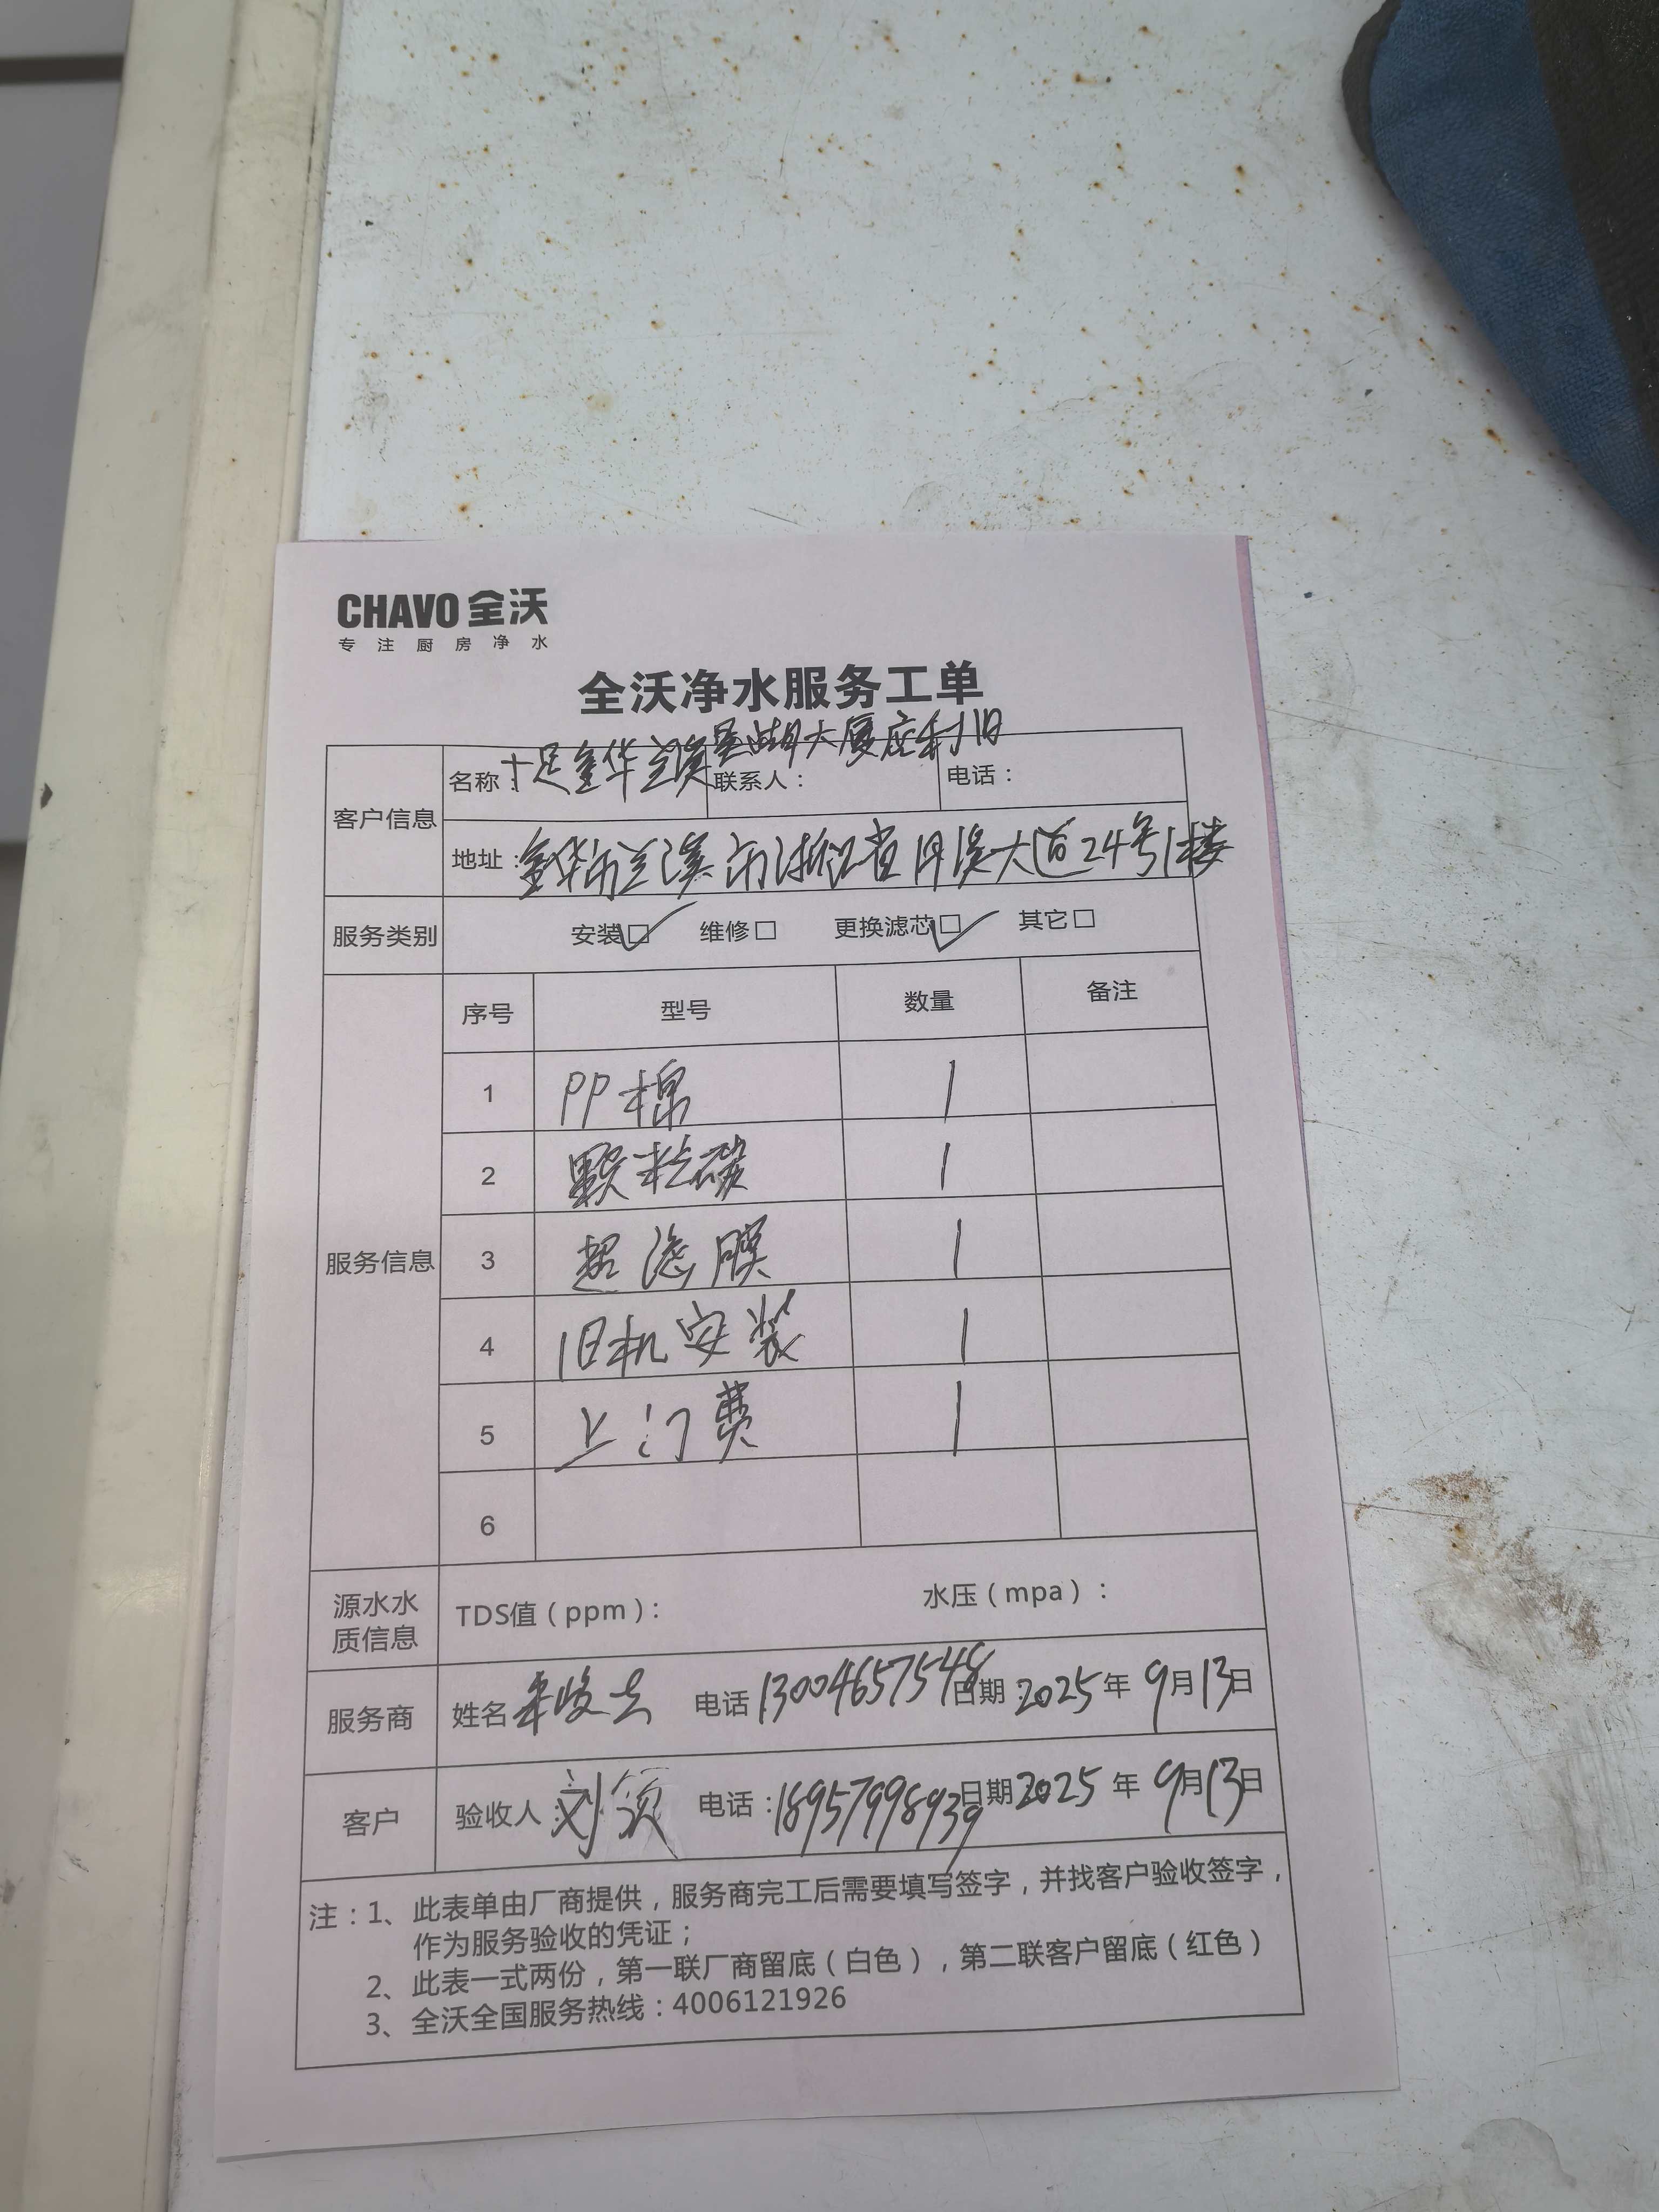 CHAVO 全沃
专注厨房净水
全沃净水服务工单
客户信息
名称：十足金华兰溪大厦店利旧
联系人：
电话：
地址：金华市兰溪市浙江省丹溪大道24号1楼
服务类别
安装☑ 维修□ 更换滤芯☑ 其它□
服务信息
序号 型号 数量 备注
1 PP棉 1
2 颗粒碳 1
3 超滤膜 1
4 旧机安装 1
5 上门费 1
6
源水水质信息
TDS值（ppm）： 水压（mpa）：
服务商 姓名 电话 13004657548 日期 2025年9月13日
客户 验收人：刘 电话：18957998939 日期 2025年9月13日
注：1、此表单由厂商提供，服务商完工后需要填写签字，并找客户验收签字，
作为服务验收的凭证；
2、此表一式两份，第一联厂商留底（白色），第二联客户留底（红色）
3、全沃全国服务热线：4006121926